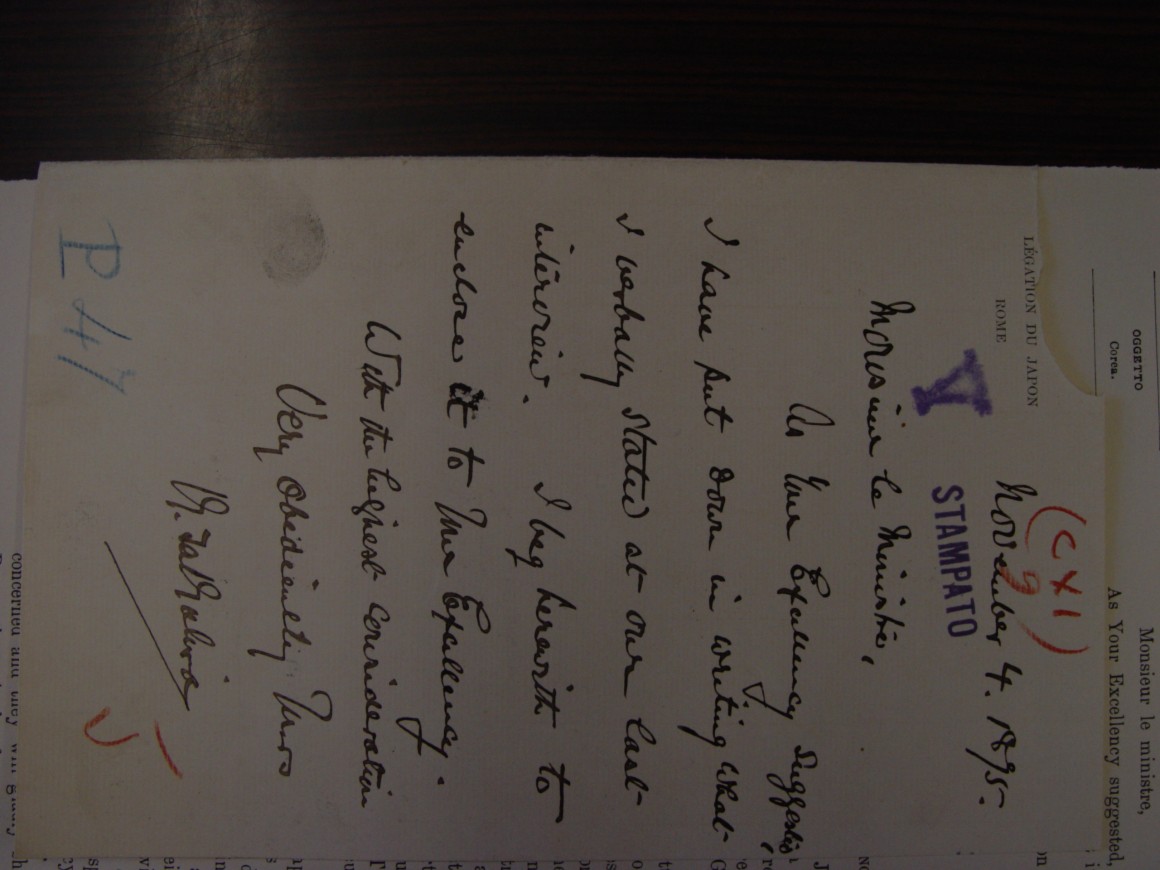 OGGETTO
Corea.
Monsieur le ministre,
As Your Excellency suggested,
LÉGATION DU JAPON
ROME
(CXI)
9
November 4. 1895.
V
STAMPATO
Monsieur le Ministre,
As Your Excellency suggested,
I have put down in writing what
I verbally stated at our last
interview. I beg herewith to
enclose it to Your Excellency.
With the highest consideration
Very obediently Yours
P 47
concerned and they will gladly